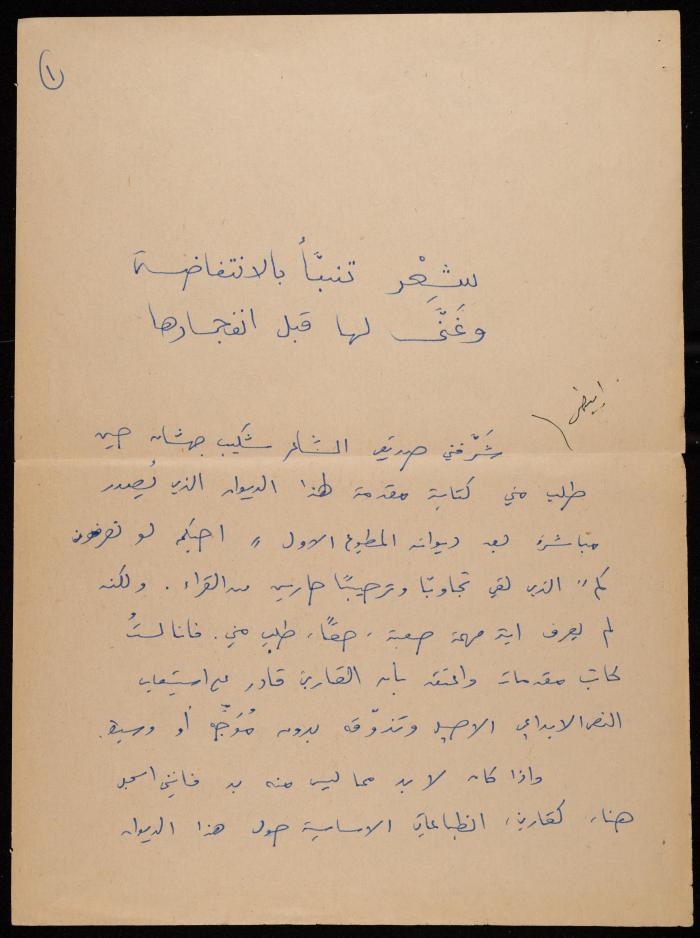 ١
شِعْر تنبّأ بالانتفاضة
وغَنَّى لها قبل انفجارها
ابيض
شَرَّفني صديقي الشاعر شكيب جهشان حين
طلب مني كتابة مقدمة لهذا الديوان الذي يُصدر
مباشرة بعد ديوانه المطبوع الاول " احبكم لو تعرفون
كم " الذي لقي تجاوبًا وترحيبًا حارين من القراء . ولكنه
لم يعرف اية مهمة صعبة ، حقًا ، طلب مني . فانا لستُ
كاتب مقدمات واعتقد بأن القارئ قادر على استيعاب
النص الابداعي الاصيل وتذوّقه بدون مُوَجِّه أو وسيط .
واذا كان لا بد مما ليس منه بد فانني اسجل
هنا ، كقارئ ، انطباعاتي الاساسية حول هذا الديوان